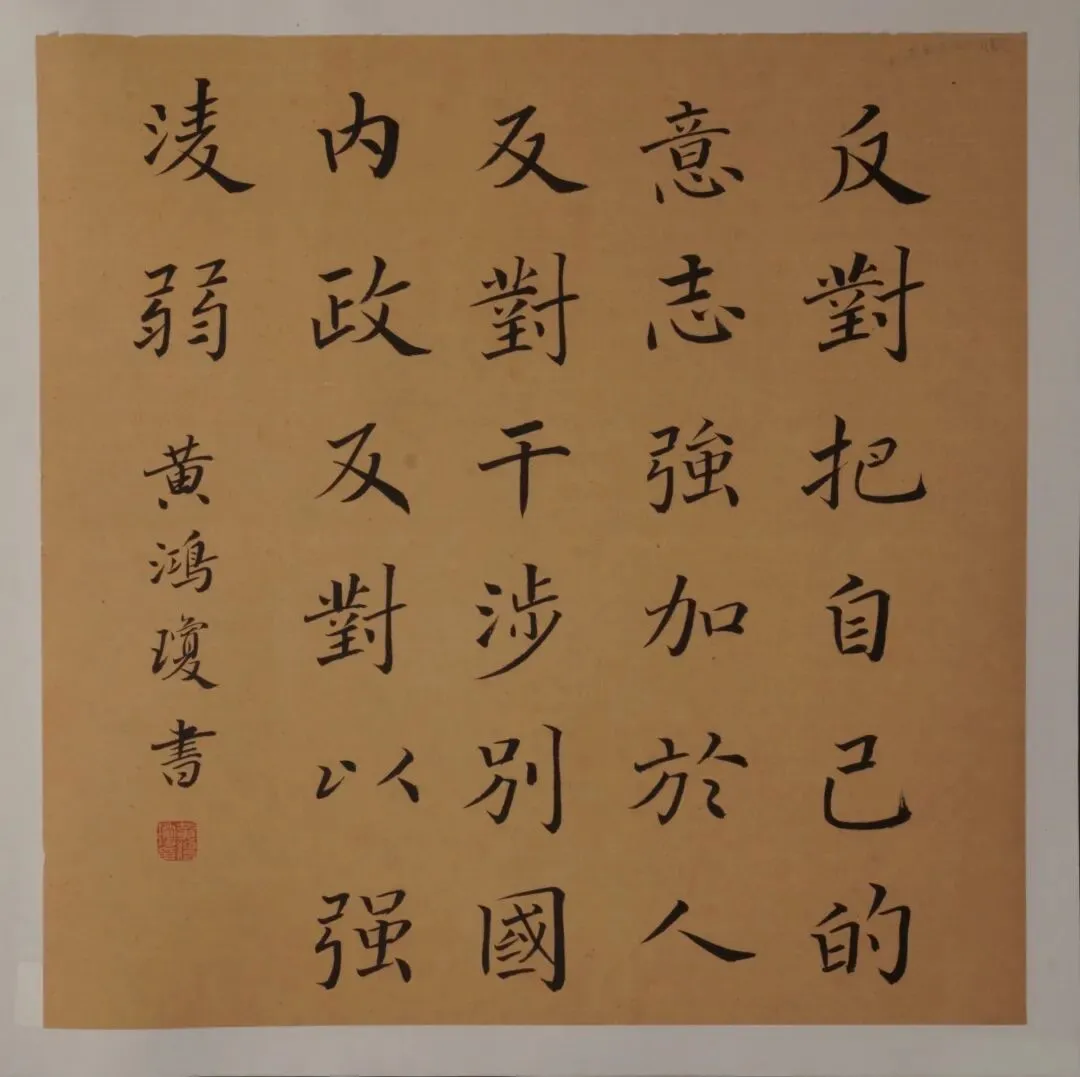 反對把自己的
意志強加於人
反對干涉別國
内政反對以强
凌弱
黄鴻瓊書